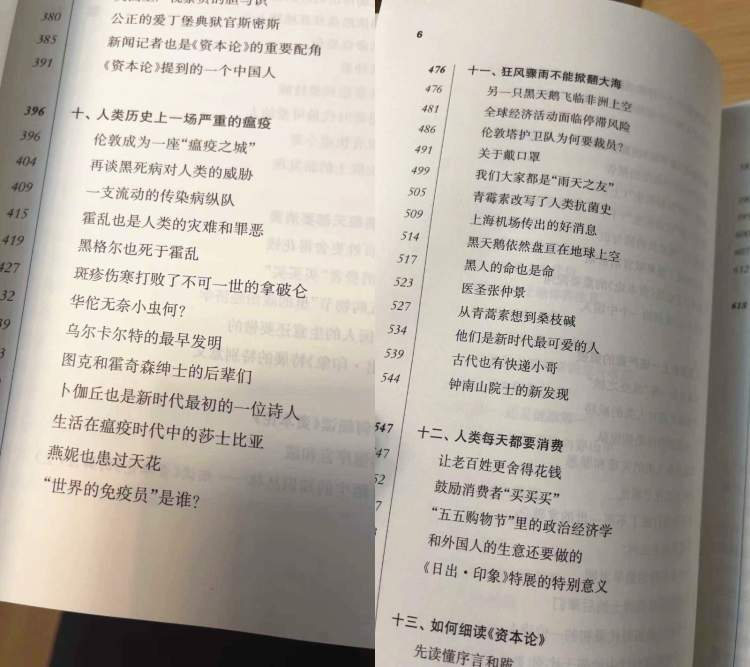 380
公正的爱丁堡典狱官斯密斯
385
新闻记者也是《资本论》的重要配角
391
《资本论》提到的一个中国人
396
十、人类历史上一场严重的瘟疫
396
伦敦成为一座“瘟疫之城”
404
再谈黑死病对人类的威胁
409
一支流动的传染病纵队
415
霍乱也是人类的灾难和罪恶
419
黑格尔也死于霍乱
427
斑疹伤寒打败了不可一世的拿破仑
华佗无奈小虫何？
乌尔卡尔特的最早发明
图克和霍奇森绅士的后辈们
卜伽丘也是新时代最初的一位诗人
生活在瘟疫时代中的莎士比亚
燕妮也患过天花
“世界的免疫员”是谁？
6
476 十一、狂风骤雨不能掀翻大海
476 另一只黑天鹅飞临非洲上空
481 全球经济活动面临停滞风险
486 伦敦塔护卫队为何要裁员？
491 关于戴口罩
499 我们大家都是“雨天之友”
505 青霉素改写了人类抗菌史
509 上海机场传出的好消息
514 黑天鹅依然盘亘在地球上空
517 黑人的命也是命
523 医圣张仲景
527 从青蒿素想到桑枝碱
534 他们是新时代最可爱的人
539 古代也有快递小哥
544 钟南山院士的新发现
547 十二、人类每天都要消费
让老百姓更舍得花钱
鼓励消费者“买买买”
“五五购物节”里的政治经济学
和外国人的生意还要做的
《日出·印象》特展的特别意义
十三、如何细读《资本论》
先读懂序言和跋